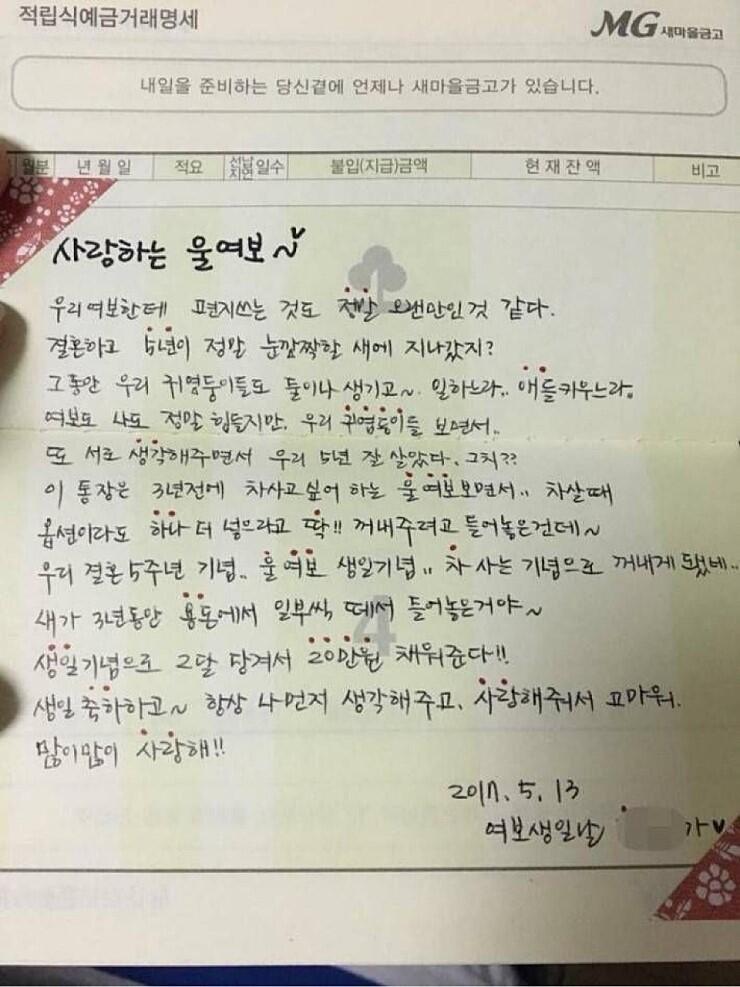 적립식예금거래명세
MG 새마을금고
내일을 준비하는 당신곁에 언제나 새마을금고가 있습니다.
월분 년월일 적요 선납 지연 일수 불입(지급)금액 현재잔액 비고
사랑하는 울여보~♥
우리여보한테 편지쓰는 것도 정말 오랜만인것 같다.
결혼하고 5년이 정말 눈깜짝할 새에 지나갔지?
그동안 우리 귀염둥이들도 둘이나 생기고~ 일하느라.. 애들키우느라.
여보도 나도 정말 힘들지만, 우리 귀염둥이들 보면서..
또 서로 생각해주면서 우리 5년 잘 살았다. 그치??
이 통장은 3년전에 차사고싶어 하는 울여보보면서.. 차살때
옵션이라도 하나 더 넣으라고 딱!! 꺼내주려고 들어놓은건데~
우리 결혼 5주년 기념.. 울여보 생일기념.. 차 사는 기념으로 꺼내게 됐네..
내가 3년동안 용돈에서 일부씩 떼서 들어놓은거야~
생일기념으로 2달 당겨서 20만원 채워준다!!
생일 축하하고~ 항상 나먼저 생각해주고, 사랑해줘서 고마워.
많이많이 사랑해!!
2017. 5. 13
여보생일날 가♥